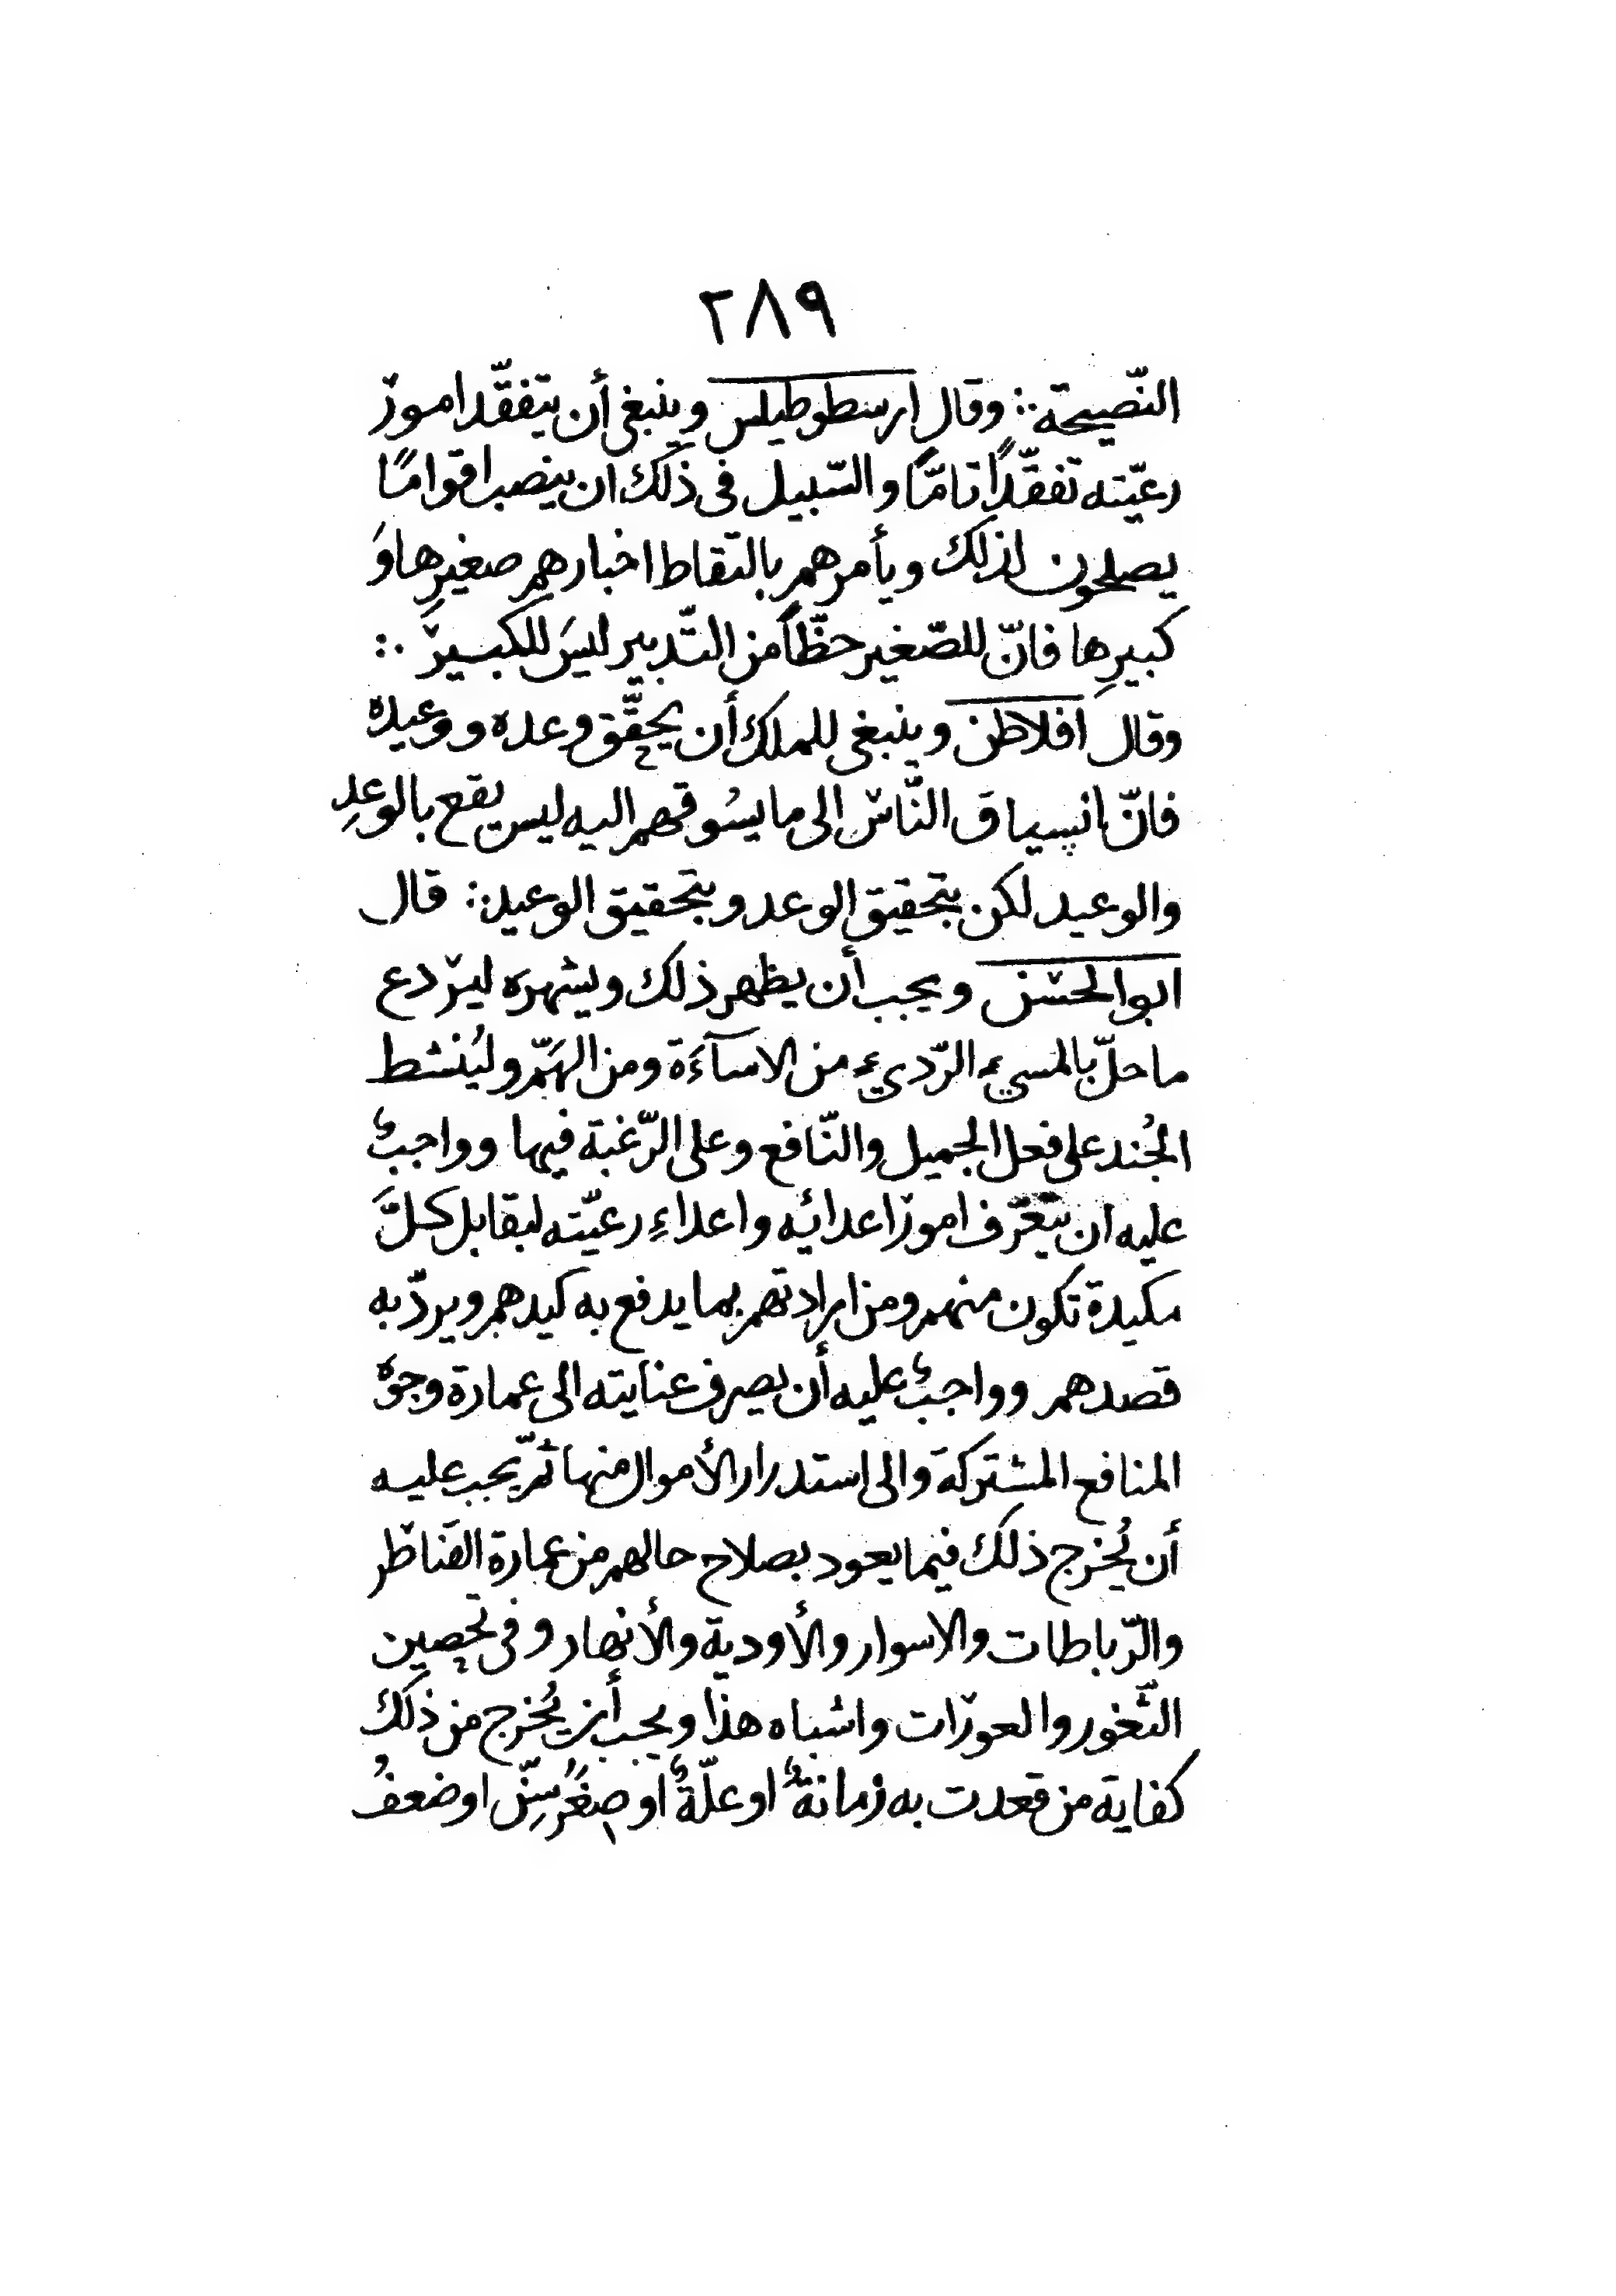 ٢٨٩
النّصيحة ⁖ وقال ارسطوطيلس وينبغى أن يتفقّد امور
رعيّته تفقّدًا تامًّا والسّبيل فى ذلك ان ينصب اقوامًا
يصلحون لذلك ويأمرهم بالتقاط اخبارهم صغيرِها وَ
كبيرِها فانّ للصّغير حظّاً من التّدبير ليسَ للكبير ⁖
وقال افلاطن وينبغى للملك أن يحقّق وعده ووعيده
فانّ انسياق النّاس الى ما يسُوقهم اليه ليس يقع بالوعدِ
والوعيد لكن بتحقيق الوعد وبتحقيق الوعيد ⁖ قال
ابو الحسن ويجب أن يظهر ذلك ويشهره ليردع
ما حلّ بالمسيء الرّديء من الاسآءَة ومن الهَمّ وليُنشط
الجُند على فعل الجميل والنّافع وعلى الرّغبة فيها وواجبٌ
عليه ان يتعرّف امور اعدائه واعداءِ رعيّته ليقابل كلَّ
مكيدة تكون منهم ومن ارادتهم بما يدفع به كيدهم ويردّ به
قصدهم وواجبٌ عليه أن يصرف عنايته الى عمارة وجوه
المنافع المشتركة والى استدرار الأموال منها ثمّ يجب عليه
أن يُخرج ذلك فيما يعود بصلاح حالهم من عمارة القناطر
والرّباطات والاسوار والأودية والأنهار وفى تحصين
الثّغور والعورات واشباه هذا ويجب أن يُخرج من ذلك
كفاية من قعدت به زمانةٌ او علّةٌ او صِغَرُ سِنّ او ضعفُ